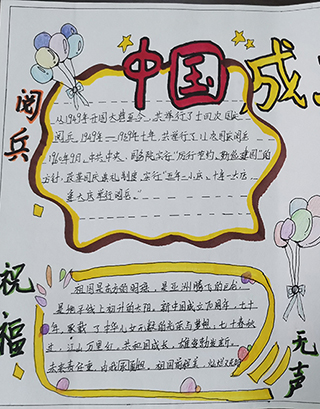 中国成
阅兵
从1949年开国大典至今，共举行了十四次国庆
阅兵，1949年—1959年十年，共举行了11次国庆阅兵
1960年9月，中共中央、国务院实行"厉行节约、勤俭建国"的
方针，改革国庆典礼制度，实行"五年一小庆、十年一大庆，
逢大庆举行阅兵。"
祝福
祖国是东方的明珠，是亚洲腾飞的巨龙，
是地平线上初升的太阳，新中国成立70周年，七十
年，承载了中华儿女无数的光荣与梦想，七十春秋
过，江山万里红，共和国成长，雄姿勃发
未来责任重，由我
无声